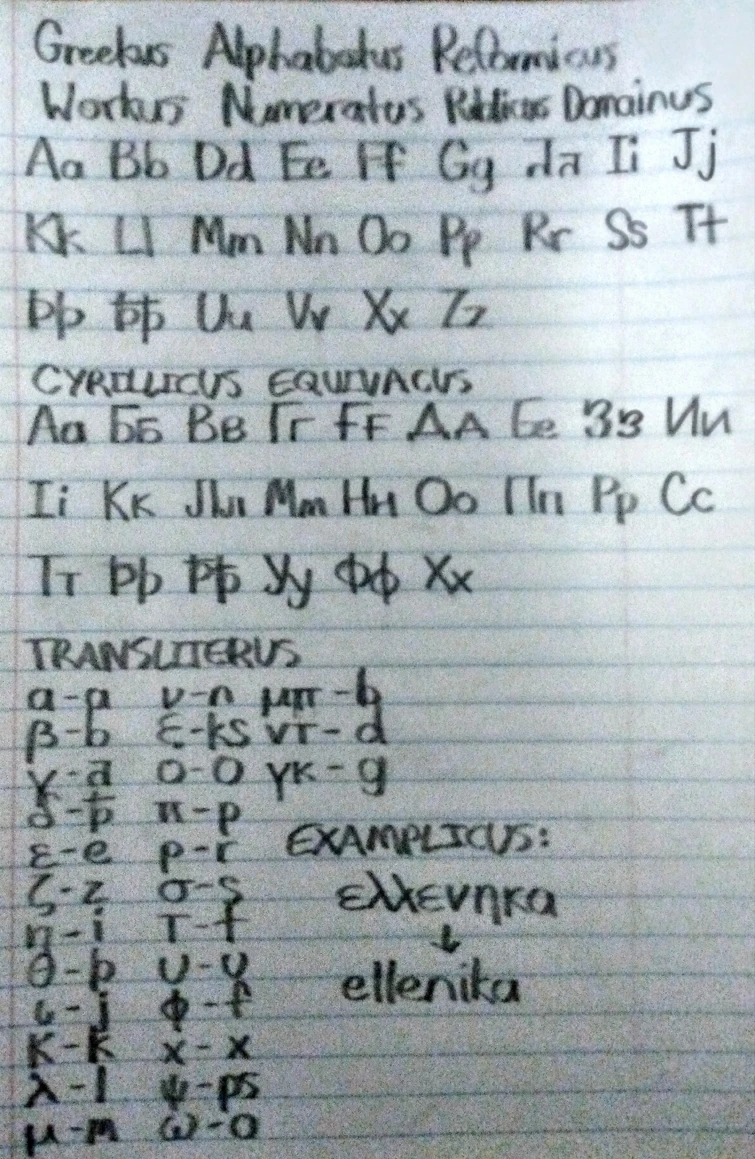 Greekus Alphabatus Reformicus
Workus Numeratus Publicus Domainus
Aa Bb Dd Ee Ff Gg Ii Jj
Kk Ll Mm Nn Oo Pp Rr Ss Tt
Þþ Uu Vv Xx Zz
CYRILLICUS EQUIVACUS
Аа Бб Вв Гг Ff Дд Ее Зз Ии
Ii Кк Лл Мм Нн Оо Пп Рр Сс
Тт Þþ Уу Фф Хх
TRANSLITERUS
α-a ν-n μπ-b
β-b ξ-ks ντ-d
ο-o γκ-g
π-p
ε-e ρ-r
EXAMPLICUS:
ζ-z σ-s
ελλενηκα
η-i τ-t
↓
θ-þ υ-v
ellenika
ι-j φ-f
κ-k χ-x
λ-l ψ-ps
μ-m ω-o